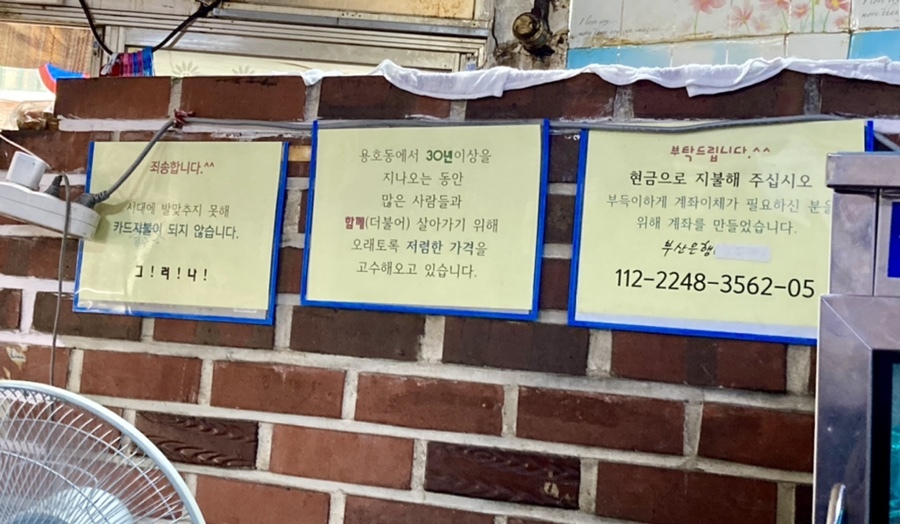 죄송합니다.^^
시대에 발맞추지 못해
카드지불이 되지 않습니다.
그!러!나!
용호동에서 30년이상을
지나오는 동안
많은 사람들과
함께(더불어) 살아가기 위해
오래토록 저렴한 가격을
고수해오고 있습니다.
부탁드립니다.^^
현금으로 지불해 주십시오
부득이하게 계좌이체가 필요하신 분을
위해 계좌를 만들었습니다.
부산은행
112-2248-3562-05